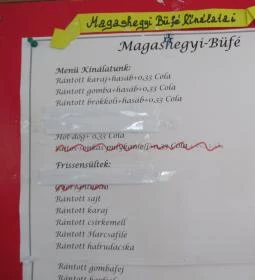 Magashegyi Büfé kínálatai
Magashegyi-Büfé
Menü Kínálatunk:
Rántott karaj+hasáb+0,33 Cola
Rántott gomba+hasáb+0,33 Cola
Rántott brokkoli+hasáb+0,33 Cola
Hot dog+ 0,33 Cola
Frissensültek:
Rántott sajt
Rántott karaj
Rántott csirkemell
Rántott Harcsafilé
Rántott halrudacska
Rántott gombafej